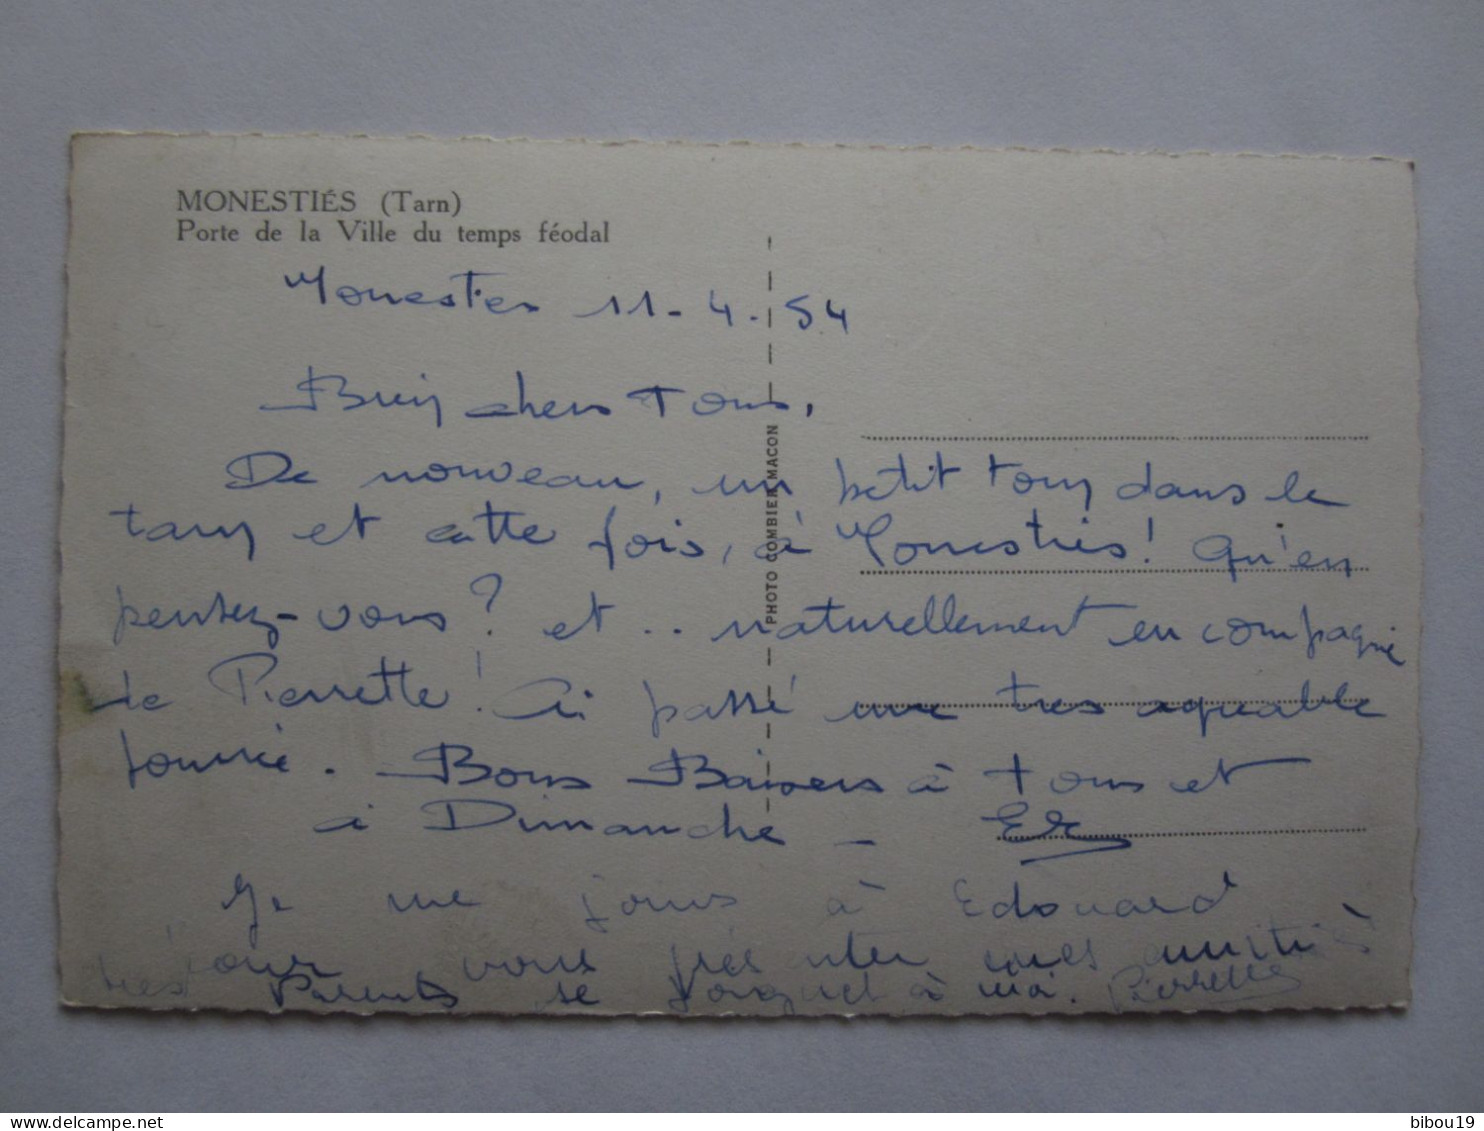 MONESTIÉS (Tarn)
Porte de la Ville du temps féodal
Monesties 11-4.54
Bien chers tous,
De nouveau, un petit tour dans le
tarn et cette fois, à Monestiés! Qu'en
pensez-vous? et .. naturellement en compagnie
de Pierrette! Ai passé une très agréable
journée. Bons Baisers à tous et
à Dimanche -
Je me joins à Edouard
pour vous présenter mes amitiés
mes Parents se joignent à moi. Pierrette
PHOTO COMBIER MACON
bibou19